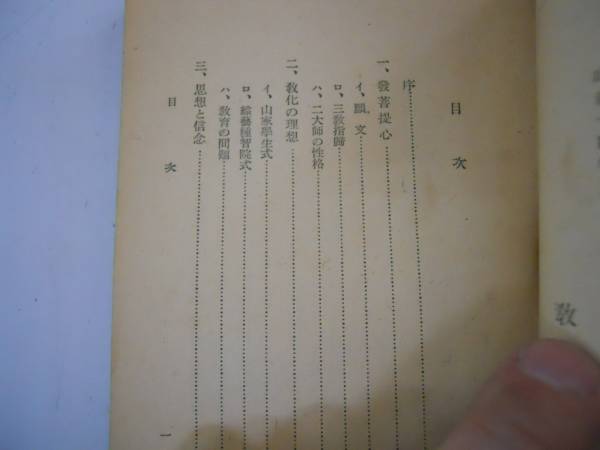 目次
序
一、發菩提心
イ、願文
ロ、三教指歸
ハ、二大師の性格
二、教化の理想
イ、山家學生式
ロ、綜藝種智院式
ハ、教育の問題
三、思想と信念
目次
一
教